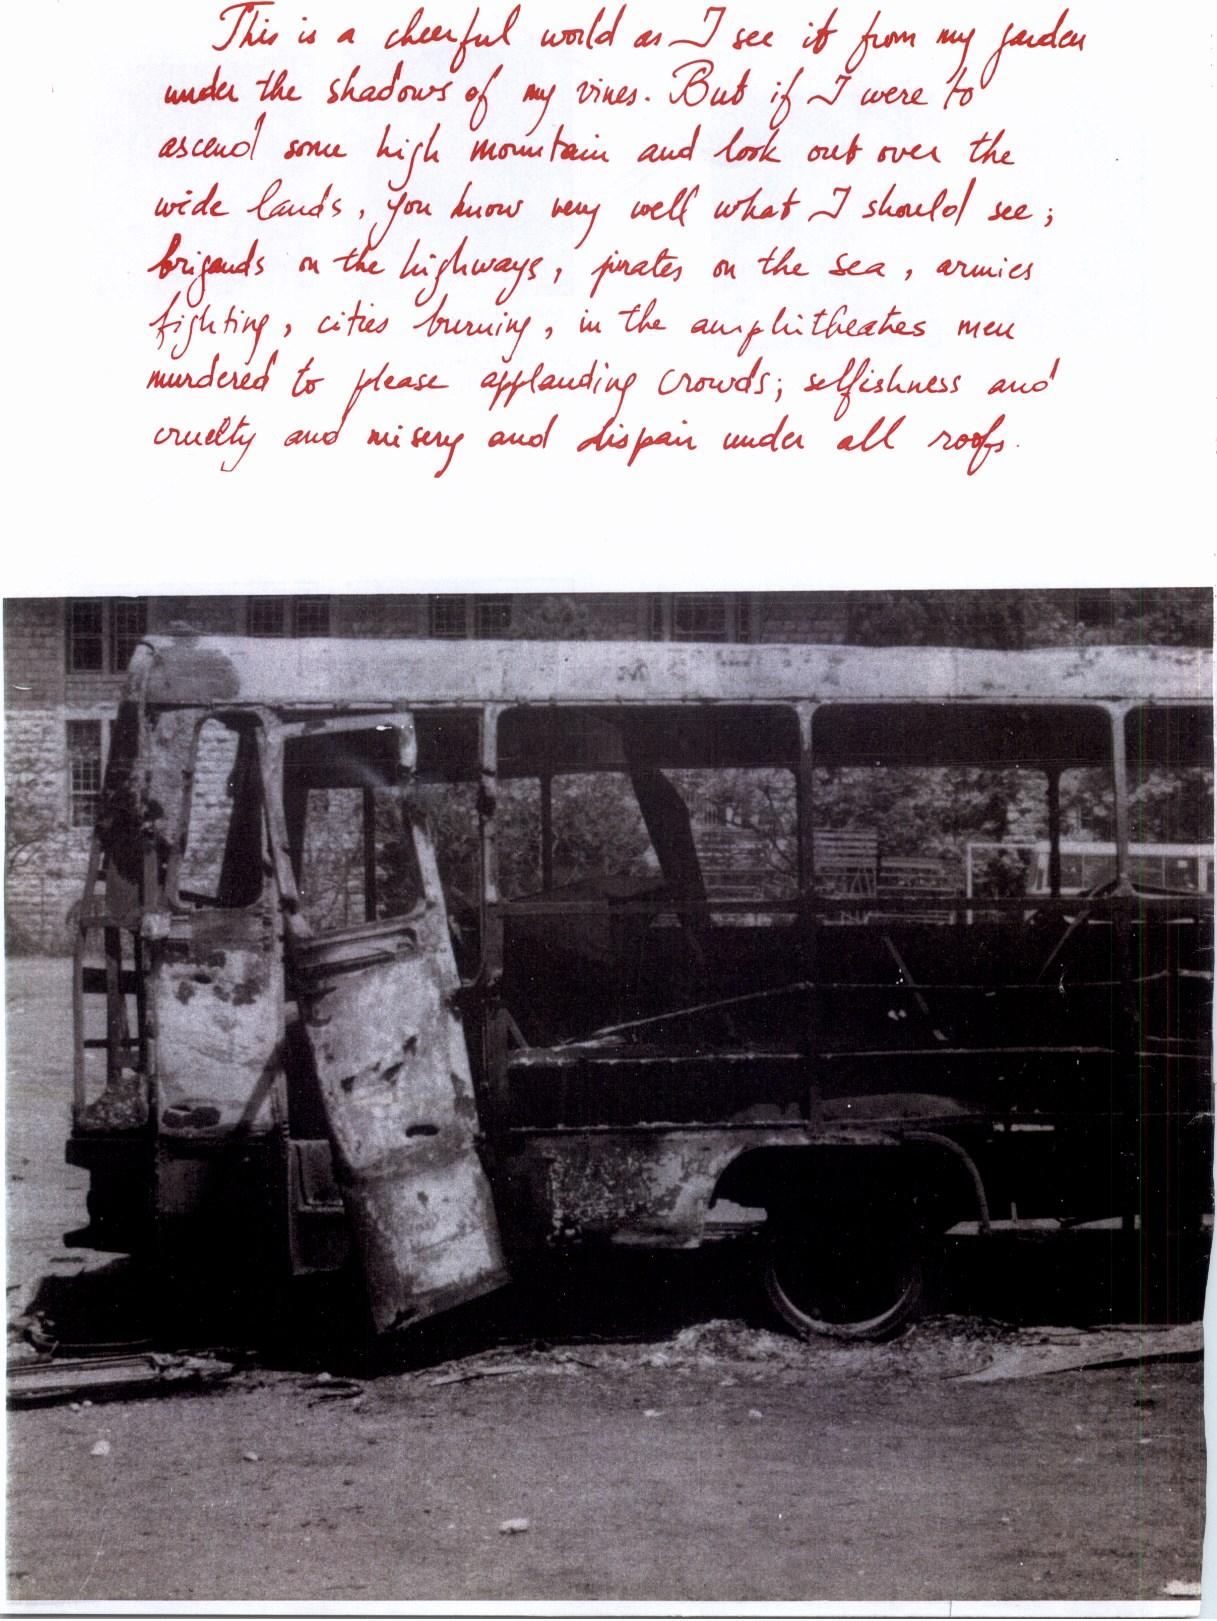 This is a cheerful world as I see it from my garden
under the shadows of my vines. But if I were to
ascend some high mountain and look out over the
wide lands, you know very well what I should see;
brigands on the highways, pirates on the sea, armies
fighting, cities burning, in the amphitheathes men
murdered to please applauding crowds; selfishness and
cruelty and misery and dispair under all roofs.